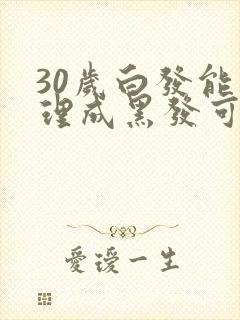 30歲白發能
理成黑發可
愛瑷一生